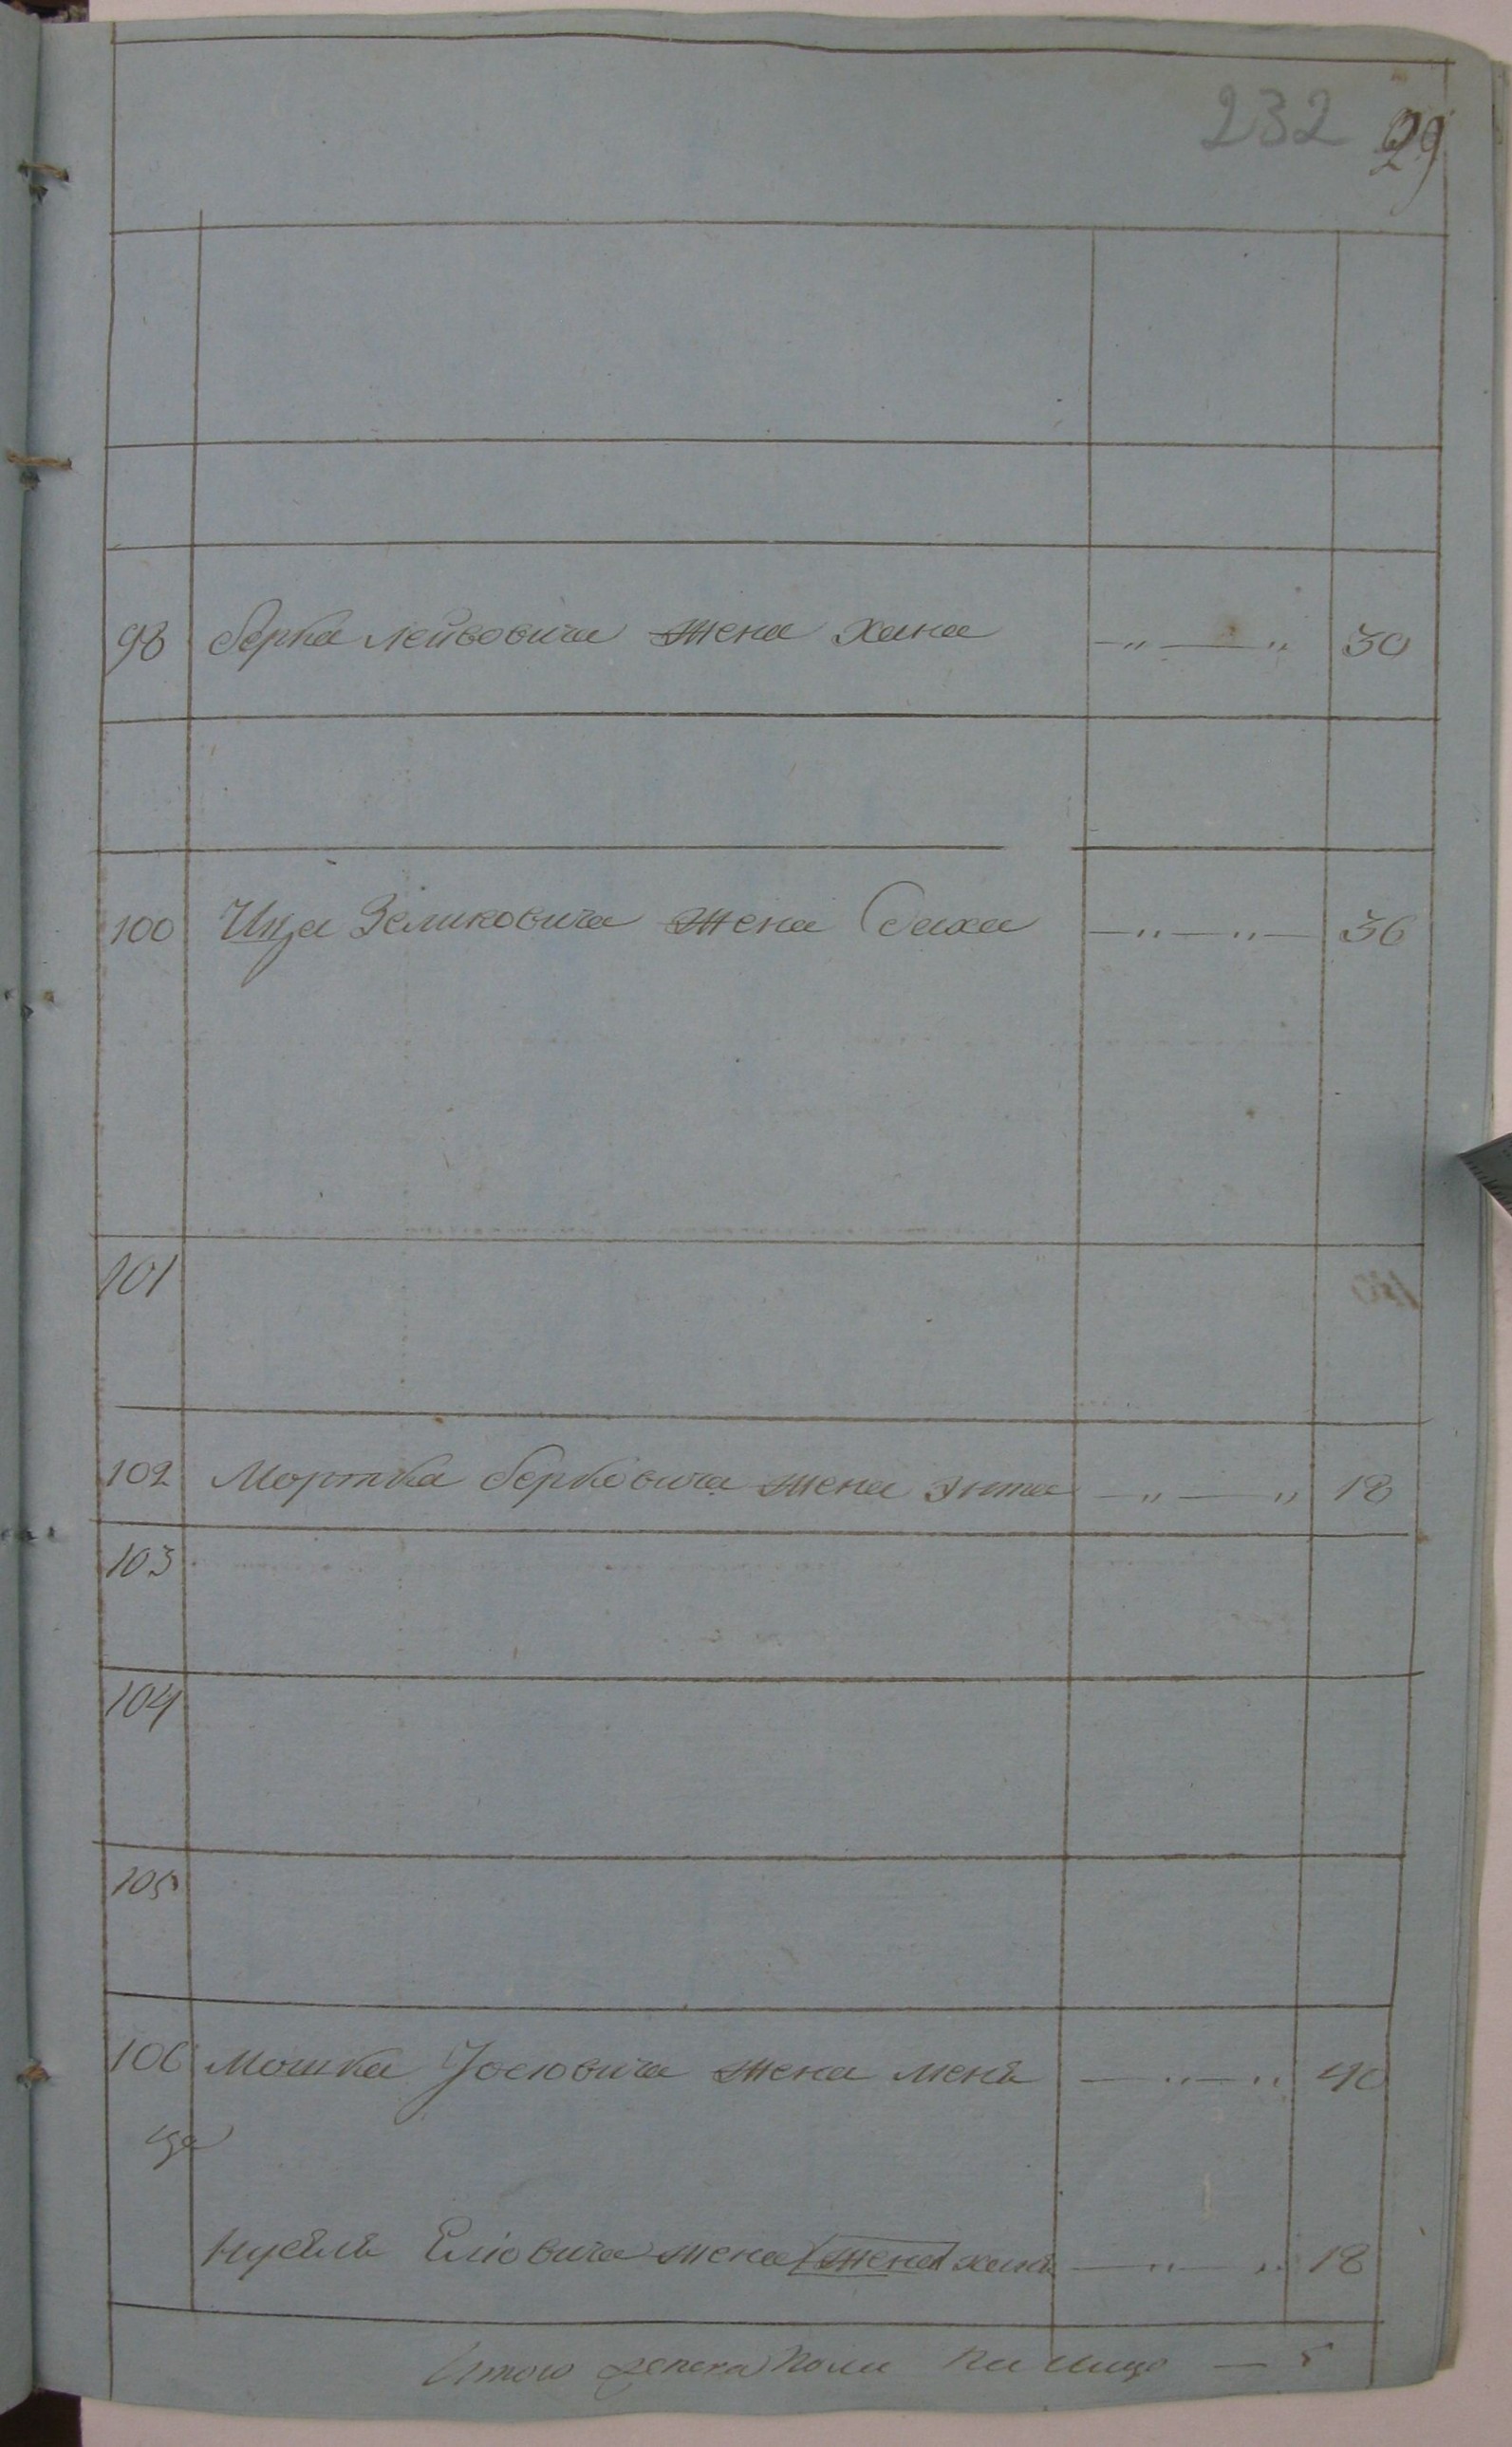 232 29
98 Берка Лейбовича жена Хана —„—„ 30
100 Ица Зеликовича жена Баха —„—„— 36
101
102 Мортка Берковича жена Энта —„—„ 18
103
104
105
106 Мошка Іосiовича жена Меня —„—„ 40
Нусѣля Еліовича жена жена Хая —„—„ 18
Итого женска пола на лицо — 5